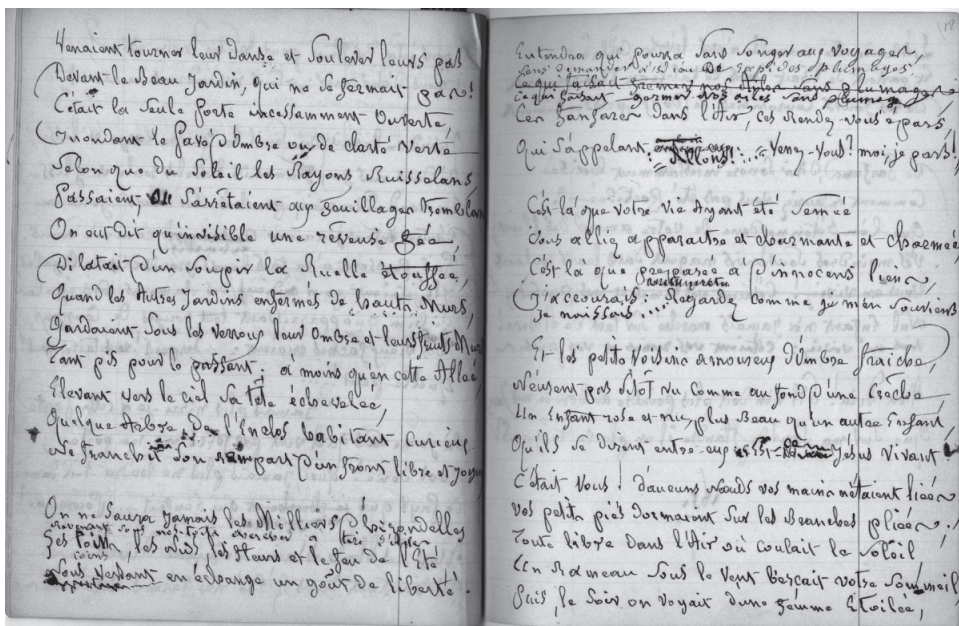 Venaient tourner leur danse et soulever leurs pas
Devant le Beau Jardin, qui ne se fermait pas !
C'était la seule porte incessamment ouverte
Inondant le pavé d'ombre ou de clarté verte
Selon que du Soleil les Rayons Ruisselans
Passaient, ou s'arrêtaient aux feuillages tremblans
On eut dit qu'invisible une rêveuse fée,
Dilatait d'un soupir la Ruelle étouffée,
Quand les Autres Jardins enfermés de hauts Murs,
Gardaient sous les verrous leur ombre et leurs fruits Murs
Tant pis pour le passant ; a moins qu'en cette Allée,
Elevant vers le ciel sa tête échevelée,
Quelque Arbre, de l'Enclos habitant curieux
Ne franchit son rempart d'un front libre et joyeux
On ne saura jamais les Milliers d'hirondelles
Revenant sous nos toits chercher à
Les toits, les nids, les fleurs et le feu de l'Été
coins
Nous versant en échange un goût de liberté.
apportaient
19
Entendra qui pourra sans songer aux voyages
sans demander
Ce qui faisait frémir nos Ailes sans plumages
Ce qui faisait germer nos ailes sans plumages
Ces fanfares dans l'Air, ces Rendez-vous épars
Qui s'appelant : Allons ! .... Venez-Vous ? moi, je pars !
C'est là que votre vie Ayant été semée
Vous alliez apparaître et charmante et charmée
C'est là que préparée à d'innocens liens,
J'accourais. Regardez comme je m'en souviens
Je naissais ....
Et les petits Voisins amoureux d'ombre fraiche,
N'eurent pas sitôt vu comme au fond d'une Crèche
Un Enfant rose et nu, plus Beau qu'un autre Enfant,
Qu'ils se dirent entre eux Est-ce Jésus vivant ?
C'était Vous ! d'aucuns nœuds vos mains n'étaient liées
Vos petits piés dormaient sur les Branches pliées,
Toute libre dans l'Air où coulait le soleil
Un Rameau sous le Vent berçait votre sommeil,
Puis, le soir on voyait d'une femme Etoilée,